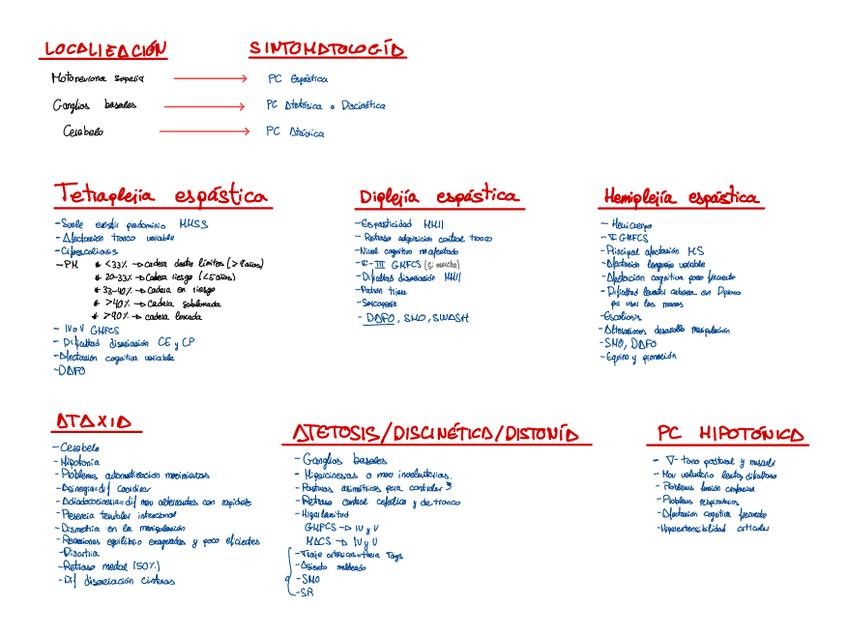 LOCALIZACIÓN
SINTOMATOLOGÍA
Motoneurona superior
PC Espástica
Ganglios basales
PC Atetósica o Discinética
Cerebelo
PC Atáxica
Tetraplejia espástica
- Suele existir predominio MMSS
- Afectación tronco variable
- Cifoescoliosis
- PM * <33% → cadera dentro límites (>
* 20-33% → cadera riesgo (<5 años)
* 33-40% → cadera en riesgo
* >40% → cadera subluxada
* >90% → cadera luxada
- IV o V GMFCS
- Dificultad disociación CE y CP
- Afectación cognitiva variable
- DAFO
Diplejía espástica
- Espasticidad MMII
- Retraso adquisición control tronco
- Nivel cognitivo no afectado
- I-III GMFCS (si marcha)
- Dificultad disociación MMII
- Patrón
- Sarcopenia
- DAFO, SMO, SWASH
Hemiplejía espástica
- Hemicuerpo
- I GMFCS
- Principal afectación MS
- Afectación lenguaje variable
- Afectación cognitiva poco frecuente
- Dificultad levantar cabeza en D prono
no usar las manos
- Escoliosis
- Alteraciones desarrollo manipulación
- SMO, DAFO
- Equino y pronación
ATAXIA
- Cerebelo
- Hipotonía
- Problemas automatización movimientos
- Asinergia: dif coordinar
- Adiadococinesia: dif mov alternantes con rapidez
- Presencia temblor intencional
- Dismetría en la manipulación
- Reacciones equilibrio exageradas y poco eficientes
- Disartria
- Retraso mental (50%)
- Dif disociación cinturas
ATETOSIS/DISCINÉTICA/DISTONÍA
- Ganglios basales
- Hipercinesias o mov involuntarios
- Posturas asimétricas para controlar
- Retraso control cefálico y de tronco
- Hiperlaxitud
GMFCS → IV y V
MACS → IV y V
- Traje Theratogs
- Asiento moldeado
- SMO
- SR
PC HIPOTÓNICA
- ∇ tono postural y muscular
- Mov voluntario lento
- Problemas
- Problemas respiratorios
- Afectación cognitiva frecuente
- Hiperextensibilidad articular